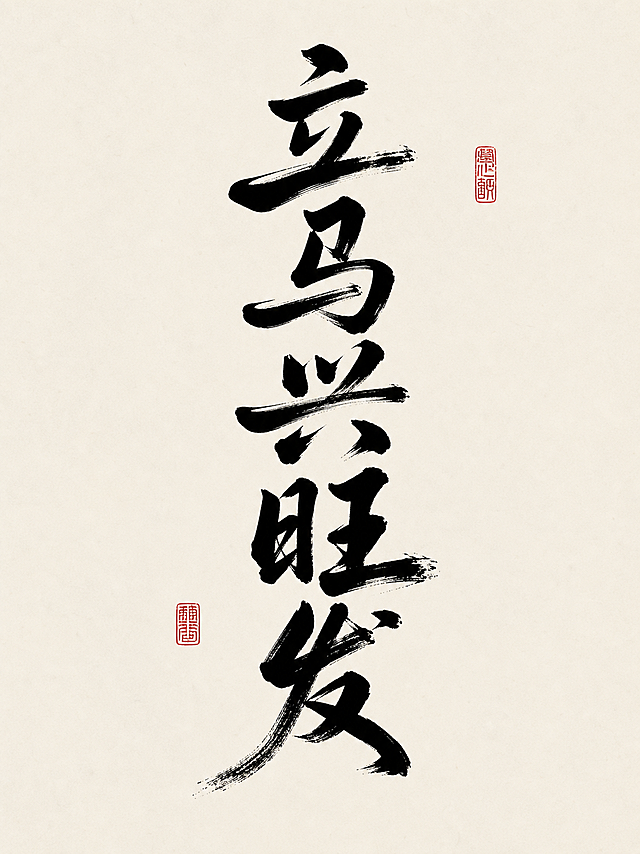 立马兴旺发